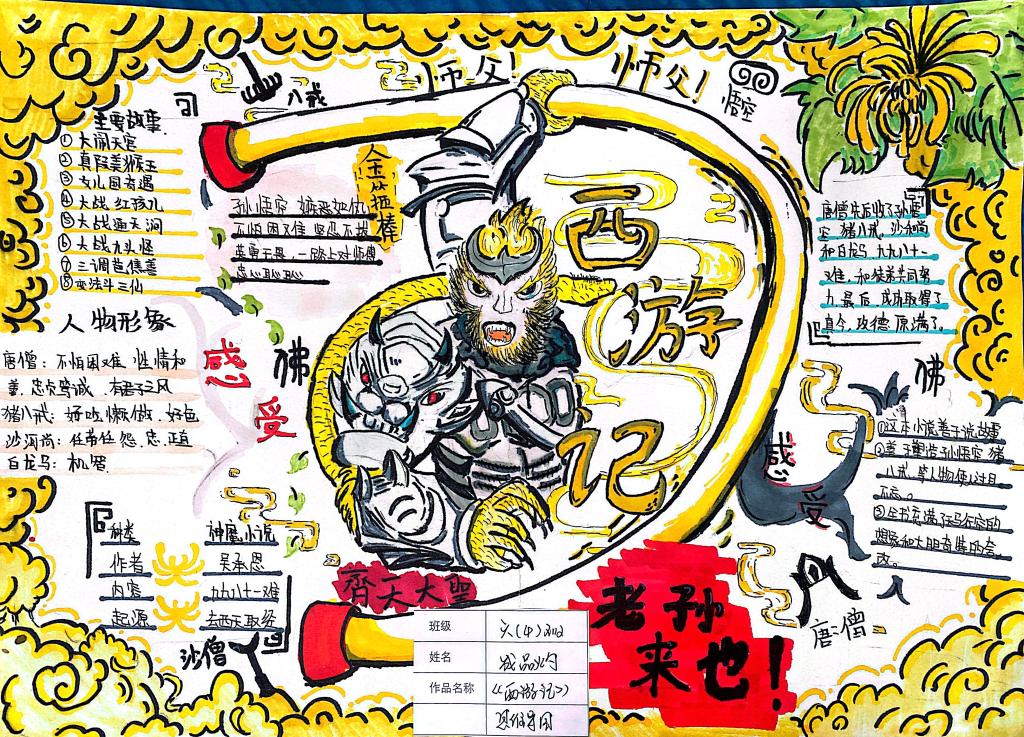 师父!
师父!
八戒
悟空
主要故事
① 大闹天宫
② 真假美猴王
③ 女儿国奇遇
④ 大战红孩儿
⑤ 大战通天河
⑥ 大战九头怪
⑦ 三调芭蕉善
⑧ 变法斗三仙
金箍棒
孙悟空 嫉恶如仇
不怕困难 坚忍不拔
英勇无畏,一路上对师傅
忠心耿耿
西游记
唐僧先后收了孙悟
空 猪八戒,沙和尚
和白龙马,九九八十一
难,和徒弟共同努
力,最后,成功取得了
真今,攻德,原满了,
人物形象
唐僧:不怕困难 性情和
善,忠贞笃诚,有君子之风
猪八戒:好吃,懒做,好色
沙河尚:任劳任怨,忠,正直
白龙马:机智
感受
佛
佛
感受
①这本小说善于说故事
不忘。
种类 神魔小说
作者 吴承恩
内容 九九八十一难
起源 去西天取经
沙僧
齊天大聖
老孙
来也!
唐僧
班级 六(4)
姓名
作品名称 《西游记》